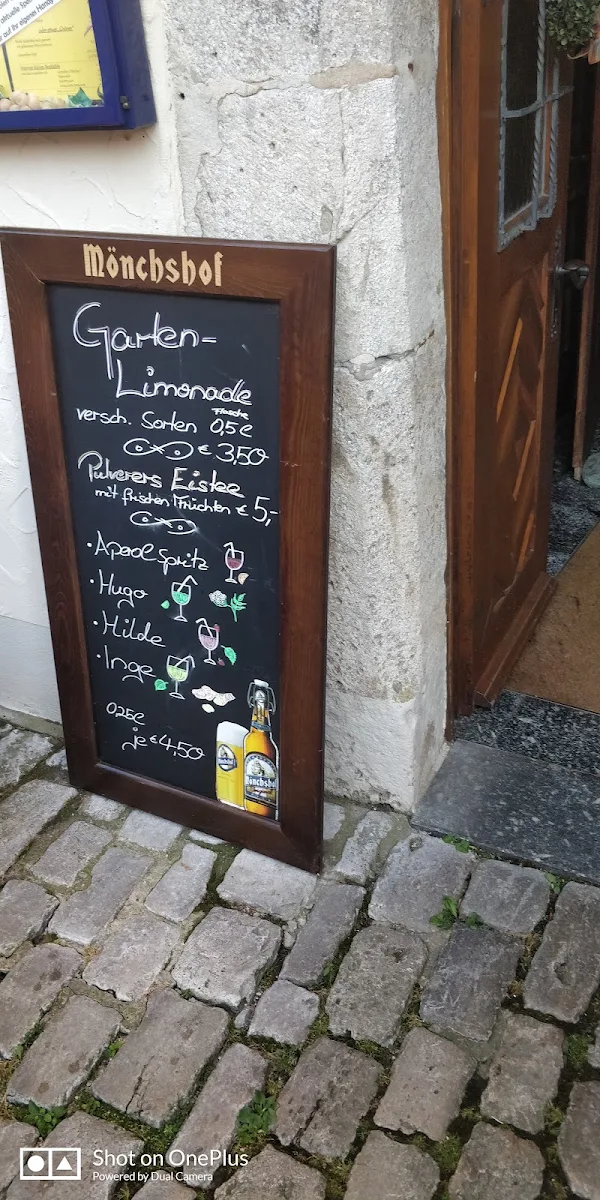 aktuelle Spei
Mönchshof
Garten-
Limonade
versch. Sorten Flasche 0,5l
€ 3,50
Pulverers Eistee
mit frischen Früchten € 5,-
• Aperol Spritz
• Hugo
• Hilde
• Inge
0,25l
je € 4,50
Mönchshof
Shot on OnePlus
Powered by Dual Camera